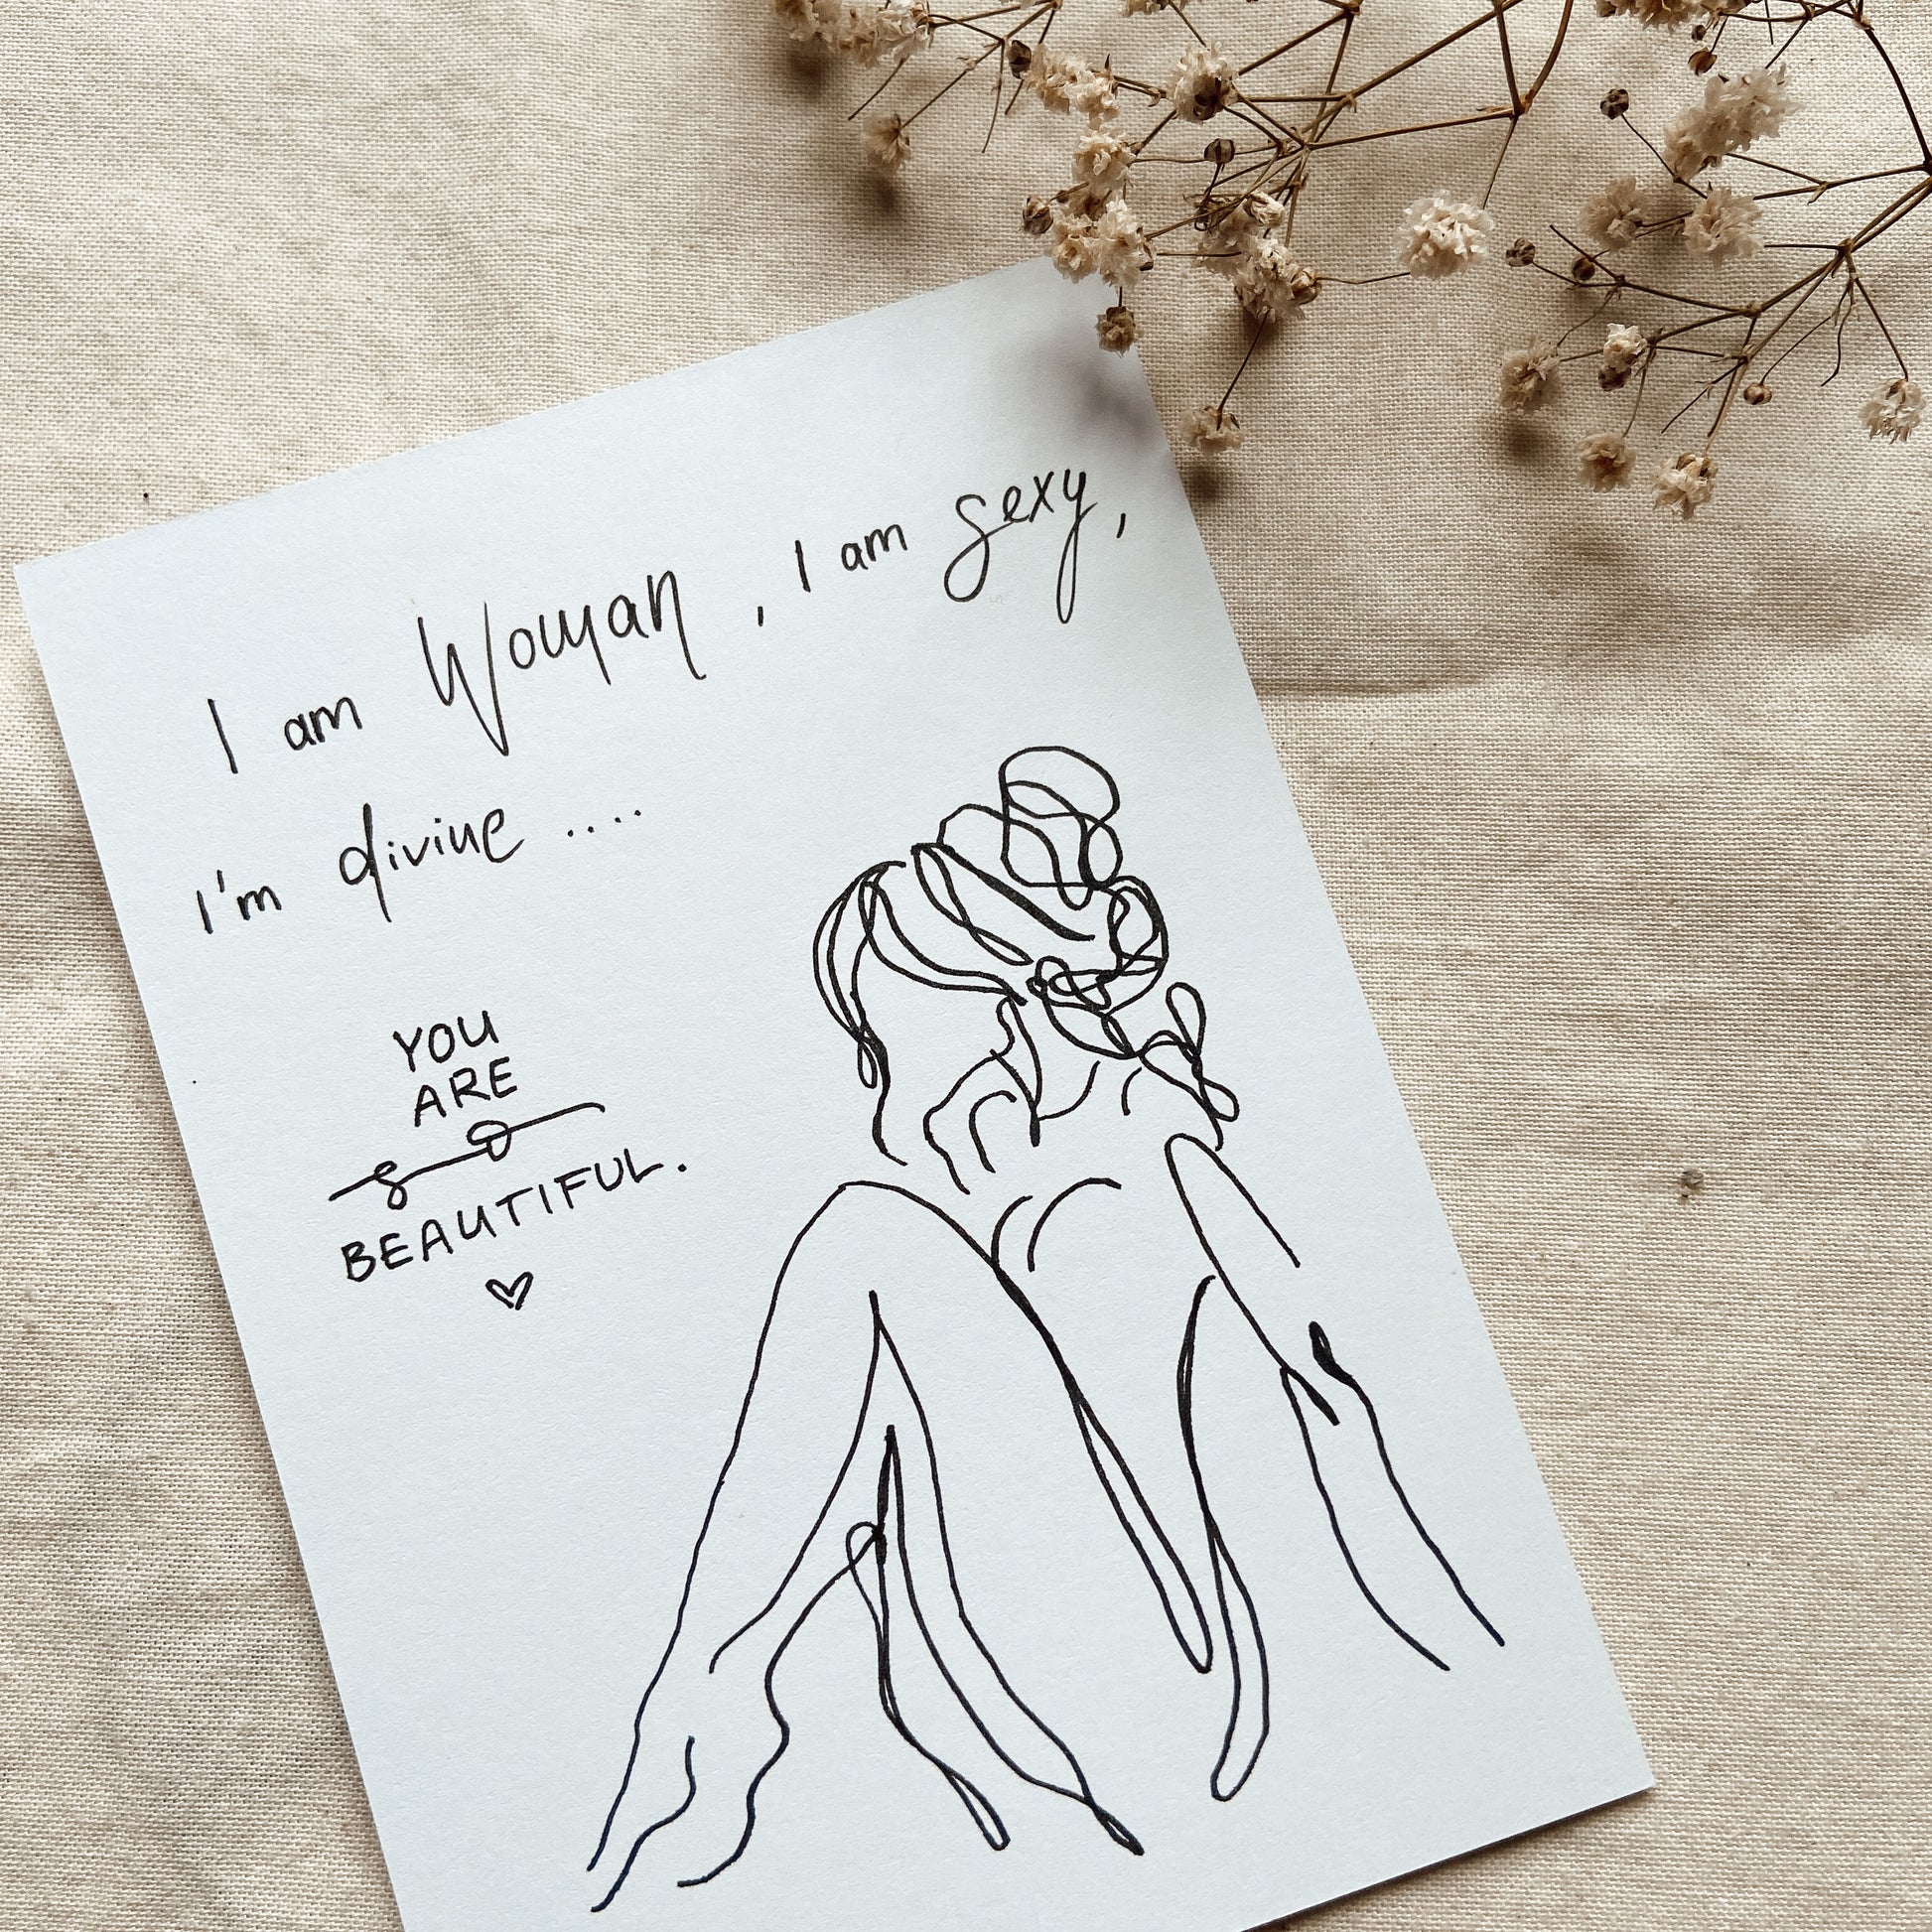 I am Woman, I am sexy,
I'm divine ....
YOU
ARE
so
BEAUTIFUL.